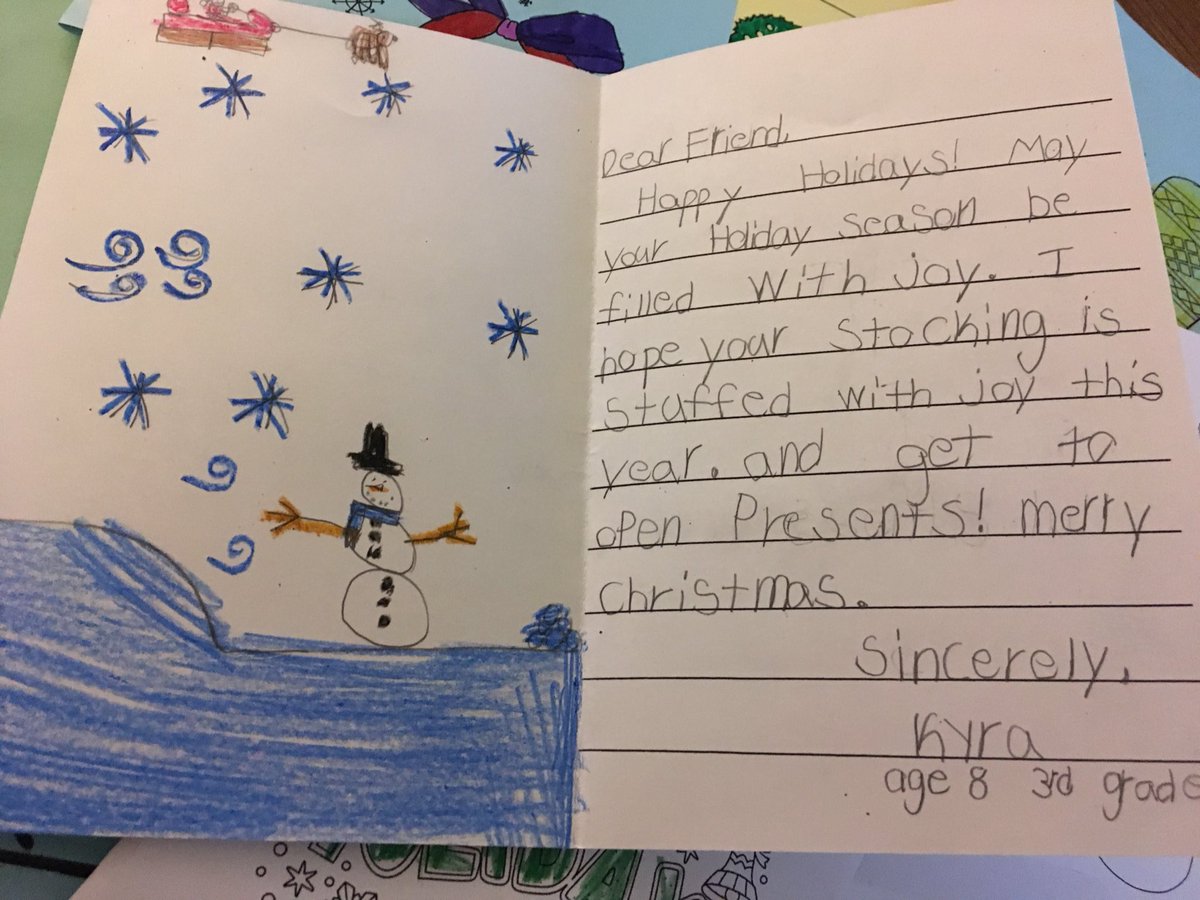 Dear Friend,
Happy Holidays! May
your Holiday season be
filled With joy. I
hope your Stocking is
Stuffed with joy this
year. and get to
open Presents! merry
christmas.
Sincerely,
Kyra
age 8 3rd grade